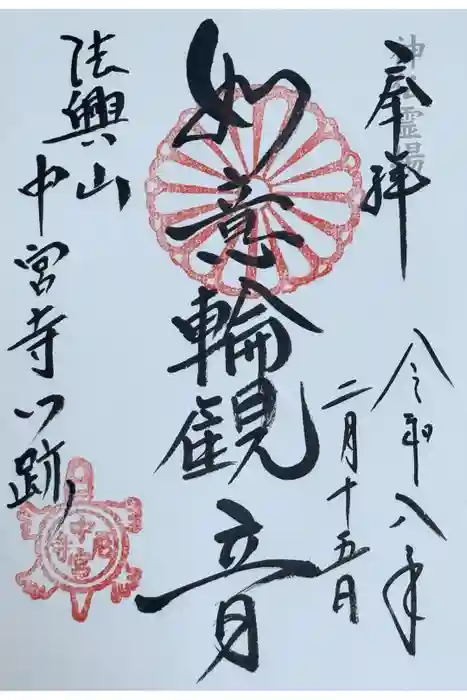 奉拝
神 霊場
令和八年
二月十五日
如意輪観音
法興山
中宮寺門跡
中宮尼寺